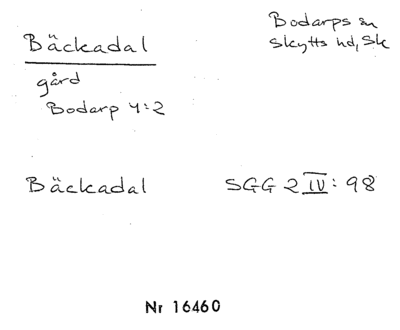 Bäckadal
Bodarps sn
Skytts hd, Sk
gård
Bodarp 4:2
Bäckadal SGG 2 IV: 98
Nr 16460